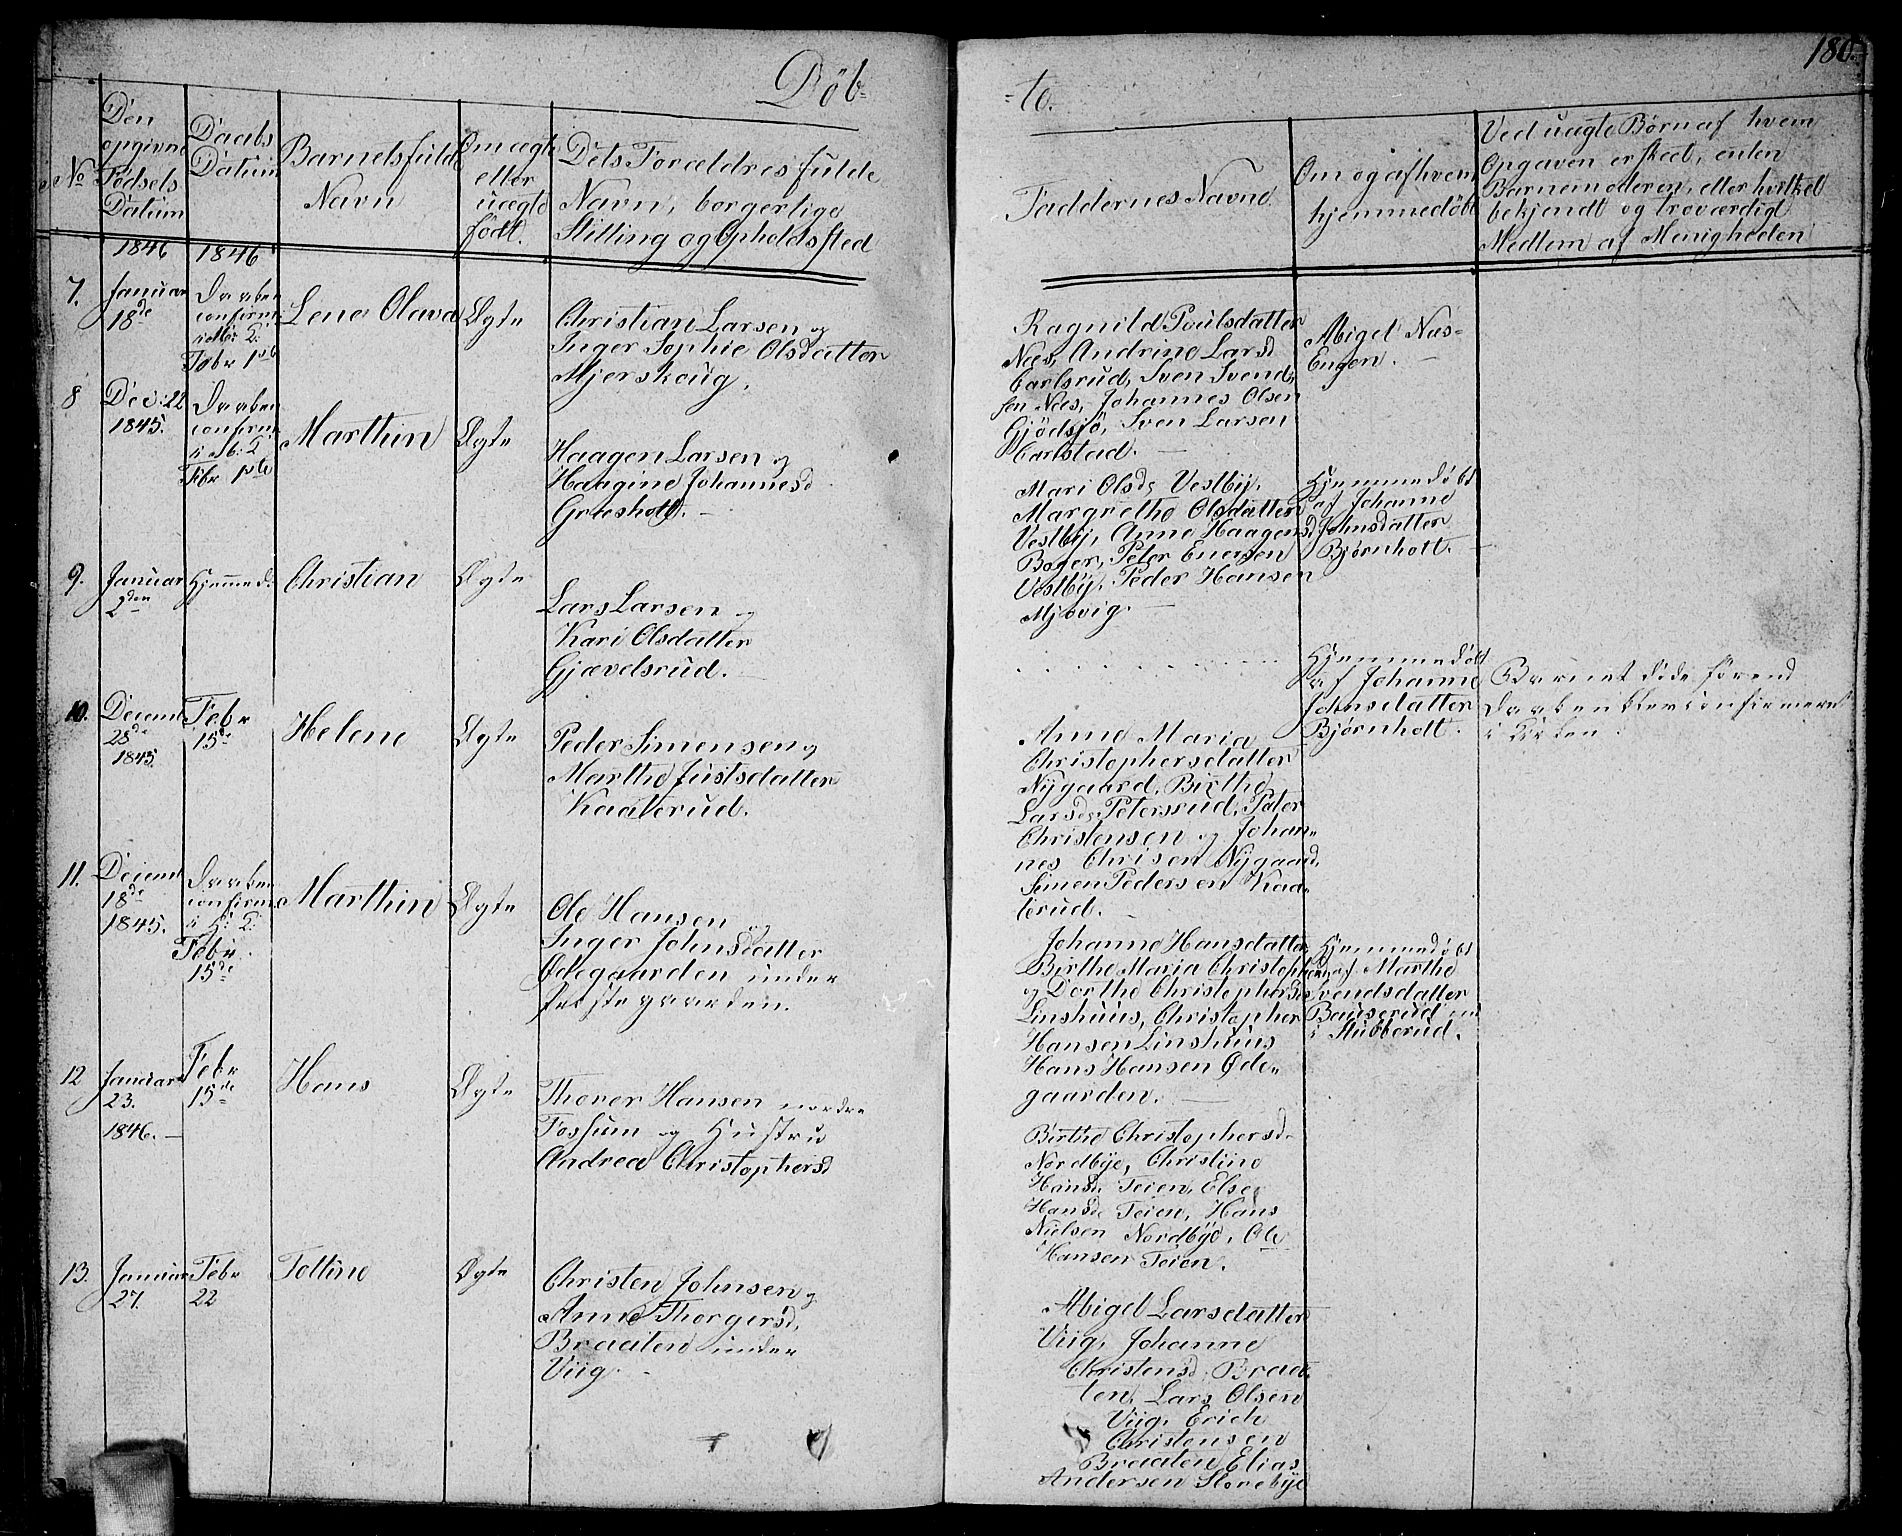 180.
Døb-
-te.
No
Den
opgivne
Fødsels
Datum
Daabs
Datum
Barnets fulde
Navn
Om ægte
eller
uægte
født.
Dets Forældres fulde
Navn, borgerlige
Stilling og Opholdsfted
Faddernes Navne
Om og af hvem
hjemmedøbt
Ved uægte Børn af hvem
Opgaven er skeet, enten
Barnemoderen, eller hvilket
bekjendt og troværdigt
Medlem af Menigheden
1846
1846
7.
Januar
18de
Daaben
confirm:
i K:
Febr 1ste
Lene Olava
Ægte
Christian Larsen og
Inger Sophie Olsdatter
Mjerskoug.
Ragnild Poulsdatter
Næs, Andrine Larsd
Carlsrud, Sven Svend-
sen Næs, Johannes Olsen
Gjødsjø, Sven Larsen
Carlstad.
Abigel Næs-
Engen.
8
Dec: 22
1845.
Daaben
confirm:
i K:
Febr 1ste
Marthin
Ægte
Haagen Larsen og
Haagine Johannesd
Græsholt.
Mari Olsd. Vestby,
Margrethe Olsdatter
Vestby, Anne Haagensd
Boger, Peter Enersen
Vestby, Peder Hansen
Mjøvig.
Hjemmedøbt
af Johanne
Johnsdatter
Bjørnholt.
9.
Januar
2den
Hjemmed.
Christian
Ægte
Lars Larsen og
Kari Olsdatter
Gjævelsrud.
Hjemmedøbt
af Johanne
Johnsdatter
Bjørnholt.
Barnet døde førend
Daaben blev confirmeret
i Kirken.
10.
Decemb
28de
1845.
Febr
15de
Helene
Ægte
Peder Simensen og
Marthe Justsdatter
Kaaterud.
Anne Maria
Christophersdatter
Nygaard, Birthe
Larsd. Peterssrud, Peter
Christensen og Johan-
nes Chrisen Nygaard,
Simen Pedersen Kaa-
terud.
11.
Decemb
18de
1845.
Daaben
confirm:
i H: K:
Febr.
15de
Marthin
Ægte
Ole Hansen
og
Inger Johnsdatter
Ødegaarden under
Prestegaarden.
Johanne Hansdatter
Birthe Maria Christophersd
og Dorthe Christophersd
Linshuus, Christopher
Hansen Linshuus
Hans Hansen Øde-
gaarden.
Hjemmedøbt
af Marthe
Svendsdatter
Bauserud nu
i Stubberud.
12
Januar
23.
1846.
Febr
15de
Hans
Ægte
Thorer Hansen nordre
Fossum og Hustru
Andrea Christophersd
Birthe Christophersd.
Nordbye, Christine
Hansd. Teien, Else
Hansd. Teien, Hans
Nielsen Nordbye, Ole
Hansen Teien.
13.
Januar
27.
Febr
22
Tolline
Ægte
Christen Johnsen og
Anne Thorgersd,
Braaten under
Viig.
Abigel Larsdatter
Viig, Johanne
Christensd. Braa-
ten, Lars Olsen
Viig, Erich
Christensen
Braaten, Elias
Andersen Storebye